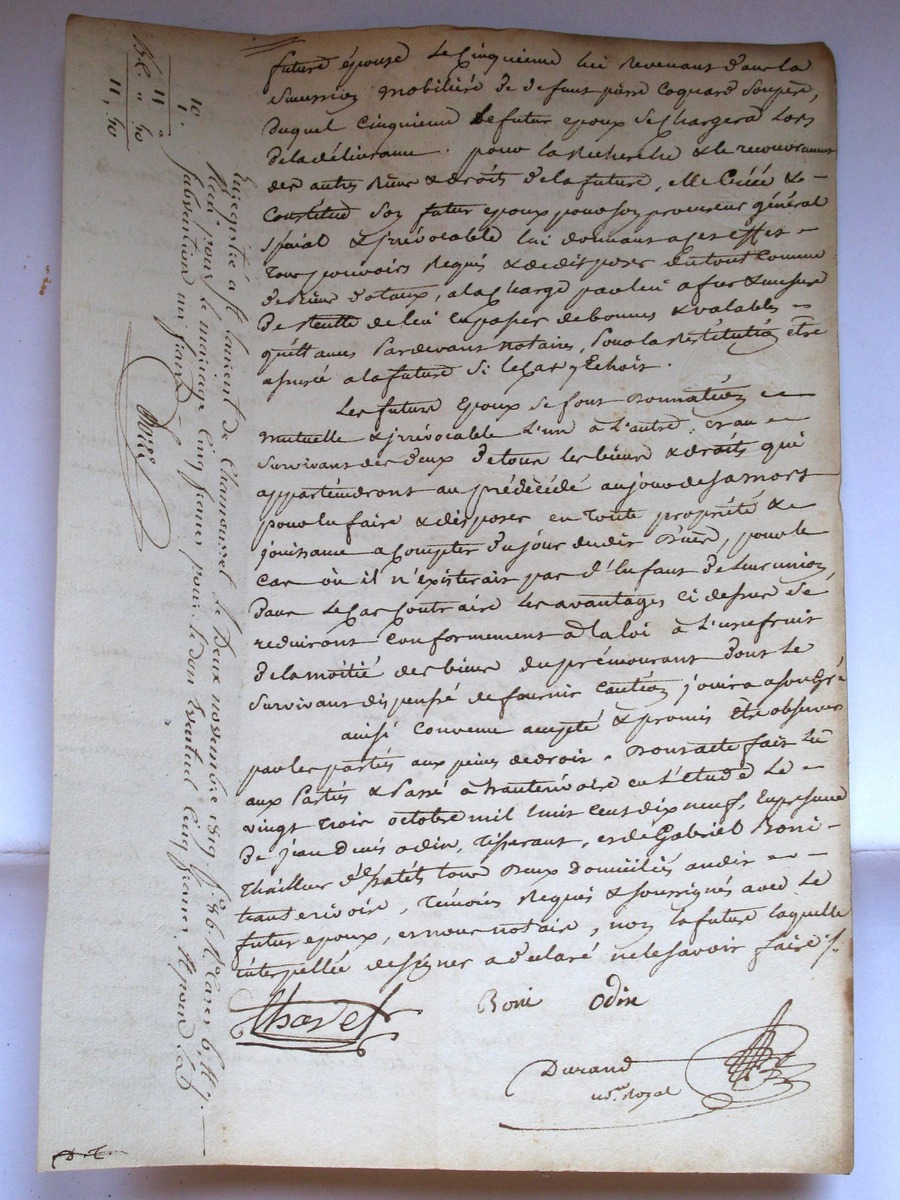 future épouse le cinquieme lui revenant dans la
succession mobiliére de defunt pierre Coquard son père,
duquel cinquieme le futur epoux se chargera lors
de la délivrance. pour la recherche & le recouvrement
des autres biens & droits de la future, elle &
constitue son futur epoux pour son procureur général
spécial & irrévocable lui donnant a cet effet
tous pouvoirs requis & de disposer du tout comme
de biens dotaux, a la charge par lui a fur & mesure
de de lui en passer de bonnes & valables
quittances pardevant notaires, pour la restitution être
assuré a la future si le cas y échoit.
Les futurs epoux se font donnation
mutuelle & irrévocable l'un à l'autre, et au
survivant des deux de tous les biens & droits qui
appartiendront au prédécédé au jour de sa mort
pour en faire & disposer en toute propriété &
jouissance a compter du jour dudit décès, pour le
cas où il n'existerait pas d'enfant de leur union,
dans le cas contraire les avantages ci dessus se
reduiront conformement à la loi à l'usufruit
de la moitié des biens du prémourant dont le
survivant dispensé de fournir caution jouira a son gré
ainsi convenu accepté & promis être observé
par les parties aux peines de droit. Dont acte fait lu
aux parties & passé à hauterivoire en l'étude le
vingt trois octobre mil huit cent dix neuf, en presence
de jean Denis odin, tisserant, et de Gabriel Boni
tailleur d'habits tous deux domiciliés audit
hauterivoire, témoins requis & soussignés avec le
futur epoux, et nous notaire, non la future laquelle
interpellée de signer a déclaré ne le savoir faire /.
Thovet
Boni
Odin
Durand
no.re Royal
Enregistré à St Laurent de Chamousset le deux novembre 1819 f° 86 R° cases 6, & 7.
Reçu pour le mariage cinq francs, pour le don mutuel cinq francs, & pour la
subvention un franc
10.
1.
11 "
11, 10